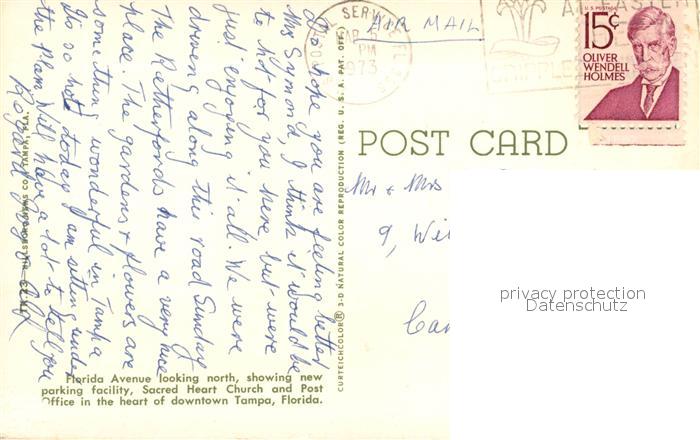 Do hope you are feeling better
Mrs Symond, I think it would be
to hot for you here but were
just enjoying it all. We were
driving along this road Sunday
The Rutherfords have a very nice
place. The gardens & flowers are
something wonderful in Tampa
Its so hot today I am sitting under
the Palm Will have a lot to tell you
AIR MAIL
POSTAL SERVICE
PM
1973
EASTER
CRIPPLED
U.S. POSTAGE
15¢
OLIVER
WENDELL
HOLMES
POST CARD
Mr & Mrs
9, Wi
Ca
privacy protection
Datenschutz
CURTEICHCOLOR® 3-D NATURAL COLOR REPRODUCTION (REG. U. S. A. PAT. OFF.)
HILLSBORO NEWS CO., TAMPA, FLA.
Florida Avenue looking north, showing new
parking facility, Sacred Heart Church and Post
Office in the heart of downtown Tampa, Florida.